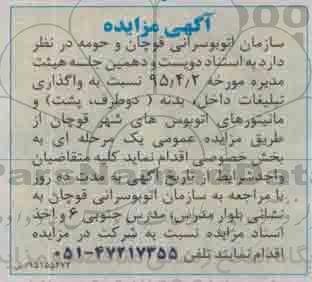 آگهی مزایده
سازمان اتوبوسرانی قوچان و حومه در نظر
دارد به استناد دویست و دهمین جلسه هیئت
مدیره مورخه ۹۵/۴/۲ نسبت به واگذاری
تبلیغات داخل، بدنه ( دوطرف، پشت) و
مانیتورهای اتوبوس های شهر قوچان از
طریق مزایده عمومی یک مرحله ای به
بخش خصوصی اقدام نماید کلیه متقاضیان
واجدشرایط از تاریخ آگهی به مدت ده روز
با مراجعه به سازمان اتوبوسرانی قوچان به
نشانی بلوار مدرس، مدرس جنوبی ۶ و اخذ
اسناد مزایده نسبت به شرکت در مزایده
اقدام نمایند تلفن ۴۷۲۱۷۳۵۵-۰۵۱